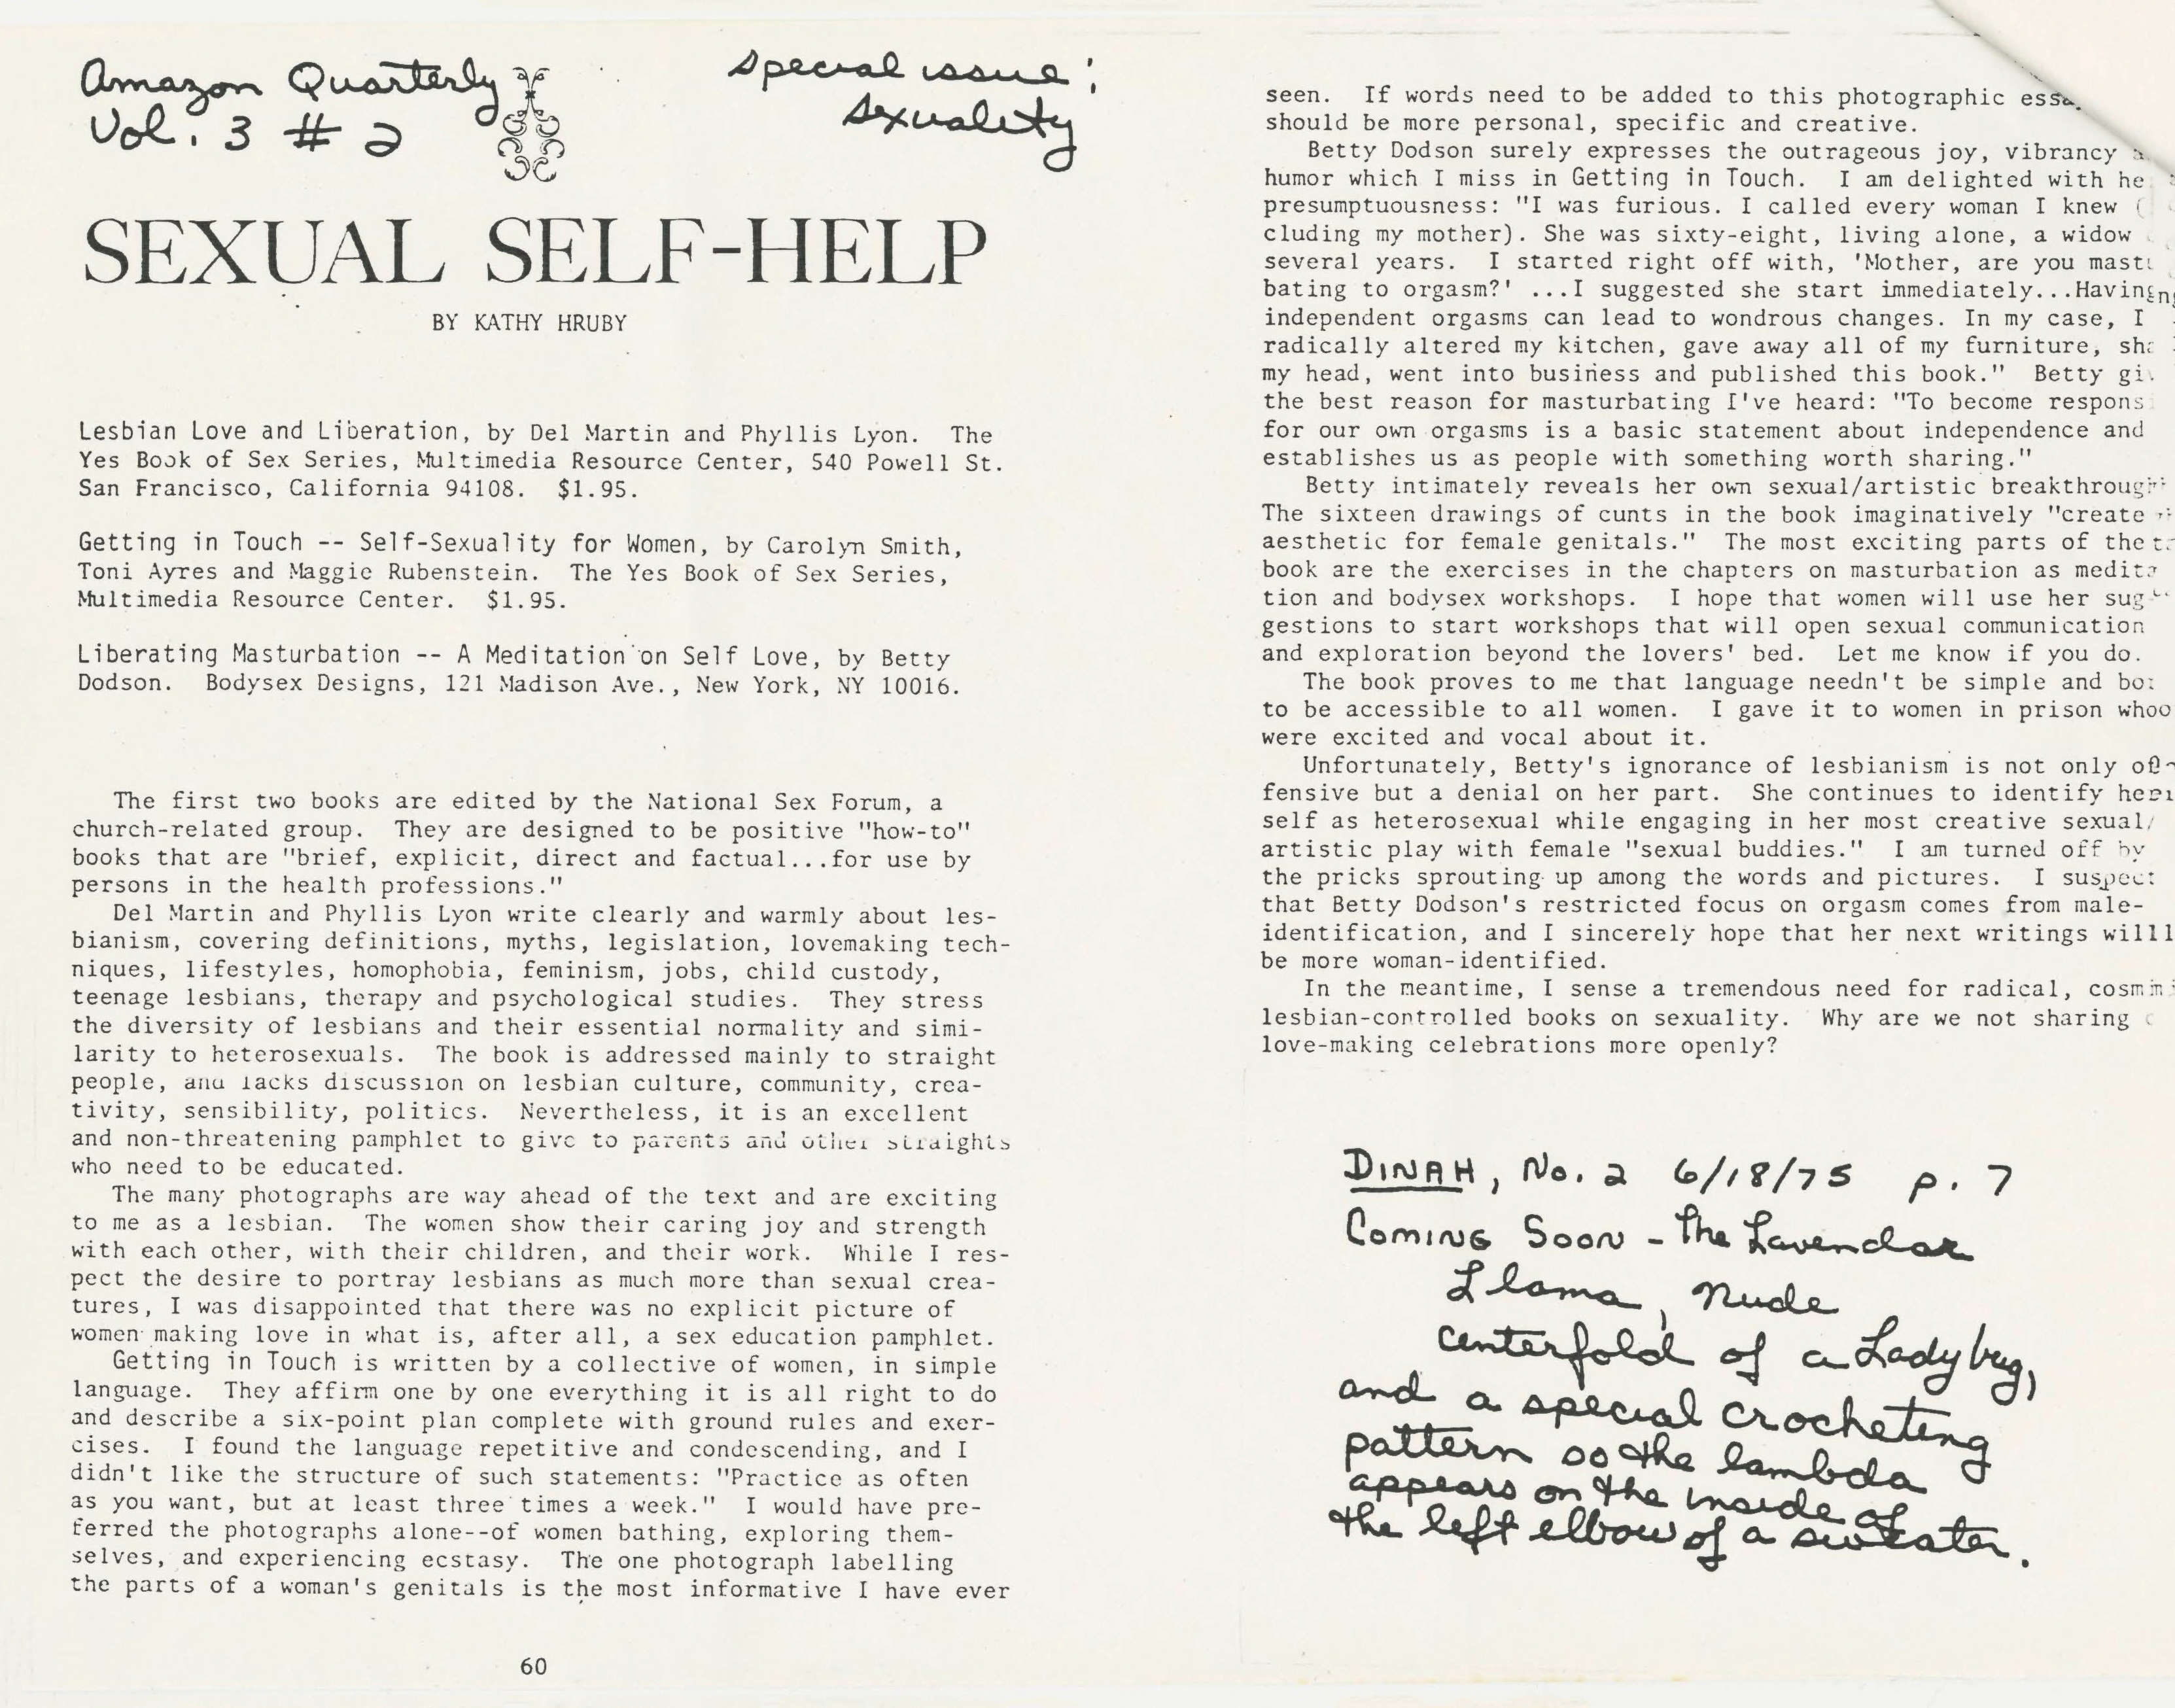 Amazon Quarterly
Vol. 3 # 2
special issue:
sexuality
SEXUAL SELF-HELP
BY KATHY HRUBY
Lesbian Love and Liberation, by Del Martin and Phyllis Lyon. The
Yes Book of Sex Series, Multimedia Resource Center, 540 Powell St.
San Francisco, California 94108. $1.95.
Getting in Touch -- Self-Sexuality for Women, by Carolyn Smith,
Toni Ayres and Maggie Rubenstein. The Yes Book of Sex Series,
Multimedia Resource Center. $1.95.
Liberating Masturbation -- A Meditation on Self Love, by Betty
Dodson. Bodysex Designs, 121 Madison Ave., New York, NY 10016.
The first two books are edited by the National Sex Forum, a
church-related group. They are designed to be positive "how-to"
books that are "brief, explicit, direct and factual...for use by
persons in the health professions."
Del Martin and Phyllis Lyon write clearly and warmly about les-
bianism, covering definitions, myths, legislation, lovemaking tech-
niques, lifestyles, homophobia, feminism, jobs, child custody,
teenage lesbians, therapy and psychological studies. They stress
the diversity of lesbians and their essential normality and simi-
larity to heterosexuals. The book is addressed mainly to straight
people, and lacks discussion on lesbian culture, community, crea-
tivity, sensibility, politics. Nevertheless, it is an excellent
and non-threatening pamphlet to give to parents and other straights
who need to be educated.
The many photographs are way ahead of the text and are exciting
to me as a lesbian. The women show their caring joy and strength
with each other, with their children, and their work. While I res-
pect the desire to portray lesbians as much more than sexual crea-
tures, I was disappointed that there was no explicit picture of
women making love in what is, after all, a sex education pamphlet.
Getting in Touch is written by a collective of women, in simple
language. They affirm one by one everything it is all right to do
and describe a six-point plan complete with ground rules and exer-
cises. I found the language repetitive and condescending, and I
didn't like the structure of such statements: "Practice as often
as you want, but at least three times a week." I would have pre-
ferred the photographs alone--of women bathing, exploring them-
selves, and experiencing ecstasy. The one photograph labelling
the parts of a woman's genitals is the most informative I have ever
60
seen. If words need to be added to this photographic
should be more personal, specific and creative.
Betty Dodson surely expresses the outrageous joy, vibrancy
humor which I miss in Getting in Touch. I am delighted with
presumptuousness: "I was furious. I called every woman I knew (
cluding my mother). She was sixty-eight, living alone, a widow
several years. I started right off with, 'Mother, are you
bating to orgasm?' ...I suggested she start immediately...Having
independent orgasms can lead to wondrous changes. In my case, I
radically altered my kitchen, gave away all of my furniture,
my head, went into business and published this book." Betty
the best reason for masturbating I've heard: "To become
for our own orgasms is a basic statement about independence and
establishes us as people with something worth sharing."
Betty intimately reveals her own sexual/artistic
The sixteen drawings of cunts in the book imaginatively "create
aesthetic for female genitals." The most exciting parts of the
book are the exercises in the chapters on masturbation as medita
tion and bodysex workshops. I hope that women will use her sug-
gestions to start workshops that will open sexual communication
and exploration beyond the lovers' bed. Let me know if you do.
The book proves to me that language needn't be simple and
to be accessible to all women. I gave it to women in prison who
were excited and vocal about it.
Unfortunately, Betty's ignorance of lesbianism is not only of-
fensive but a denial on her part. She continues to identify her
self as heterosexual while engaging in her most creative sexual/
artistic play with female "sexual buddies." I am turned off by
the pricks sprouting up among the words and pictures. I suspect
that Betty Dodson's restricted focus on orgasm comes from male-
identification, and I sincerely hope that her next writings will
be more woman-identified.
In the meantime, I sense a tremendous need for radical,
lesbian-controlled books on sexuality. Why are we not sharing
love-making celebrations more openly?
DINAH, No. 2 6/18/75 p. 7
Coming Soon - The Lavendar
Llama, nude
centerfold of a Ladybug,
and a special crocheting
pattern so the lambda
appears on the inside of
the left elbow of a sweater.